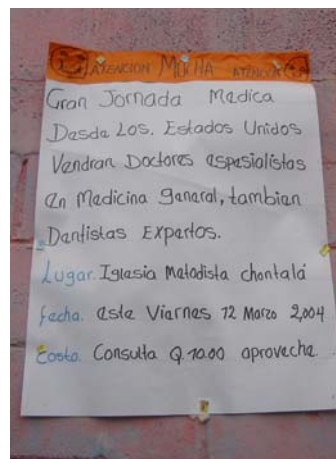 ATENCION MUCHA ATENCION
Gran Jornada Medica
Desde Los. Estados Unidos
Vendran Doctores espesialistas
en Medicina General, tambien
Dentistas Expertos.
Lugar. Iglesia Metodista chontalá
fecha. este Viernes 12 Marzo 2,004
Costo. Consulta Q.10.00 aproveche